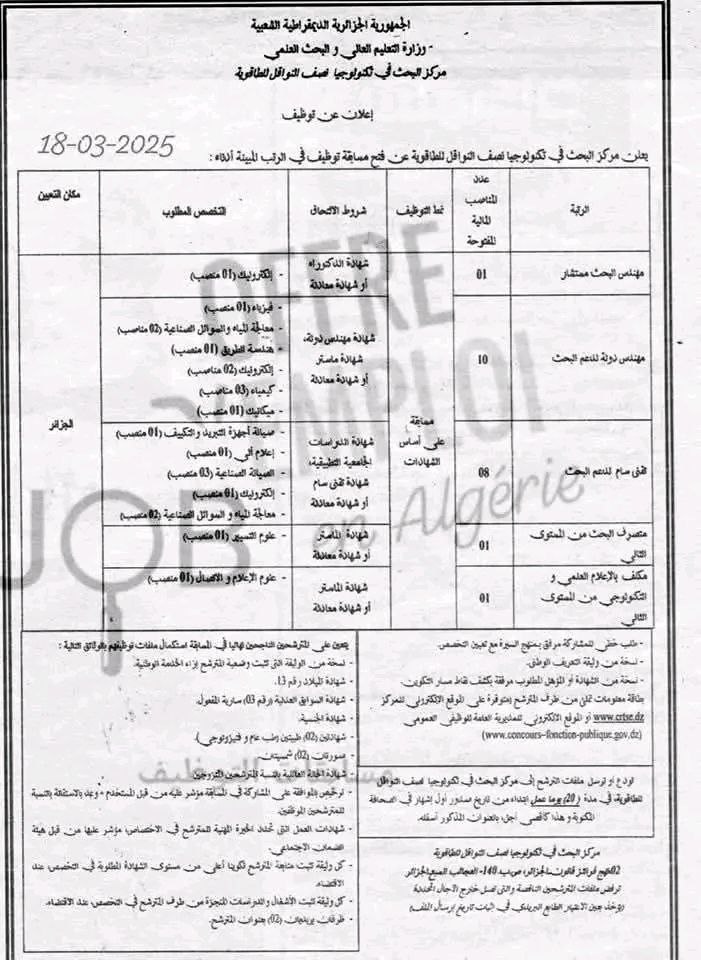 الجمهورية الجزائرية الديمقراطية الشعبية
- وزارة التعليم العالي و البحث العلمي
مركز البحث في تكنولوجيا نصف النواقل للطاقوية
إعلان عن توظيف
18-03-2025
يعلن مركز البحث في تكنولوجيا نصف النواقل للطاقوية عن فتح مسابقة توظيف في الرتب المبينة أدناه :
الرتبة
عدد المناصب المالية المفتوحة
نمط التوظيف
شروط الالتحاق
التخصص المطلوب
مكان التعيين
مهندس البحث مستشار
01
شهادة الدكتوراه
أو شهادة معادلة
- إلكترونيك (01 منصب)
مهندس دولة لدعم البحث
10
شهادة مهندس دولة،
شهادة ماستر
أو شهادة معادلة
- فيزياء (01 منصب)
- معالجة المياه و السوائل الصناعية (02 مناصب)
- هندسة الطرائق (01 منصب)
- إلكترونيك (02 مناصب)
- كيمياء (03 مناصب)
- ميكانيك (01 منصب)
مسابقة
على أساس
الشهادات
الجزائر
تقني سام لدعم البحث
08
شهادة الدراسات
الجامعية التطبيقية،
شهادة تقني سام
أو شهادة معادلة
- صيانة أجهزة التبريد و التكييف (01 منصب)
- إعلام آلي (01 منصب)
- الصيانة الصناعية (03 منصب)
- إلكترونيك (01 منصب)
- معالجة المياه و السوائل الصناعية (02 منصب)
متصرف البحث من المستوى
الثاني
01
شهادة الماستر
أو شهادة معادلة
- علوم التسيير (01 منصب)
مكلف بالإعلام العلمي و
التكنولوجي من المستوى
الثاني
01
شهادة الماستر
أو شهادة معادلة
- علوم الإعلام و الاتصال (01 منصب)
- طلب خطي للمشاركة مرفق بمنهج السيرة مع تعيين التخصص.
- نسخة من وثيقة التعريف الوطني.
- نسخة من الشهادة أو المؤهل المطلوب مرفقة بكشف نقاط مسار التكوين
بطاقة معلومات تملئ من طرف المترشح (متوفرة على الموقع الإلكتروني للمركز
www.crtse.dz أو الموقع الإلكتروني للمديرية العامة للوظيفي العمومي
(www.concours-fonction-publique.gov.dz)
تودع أو ترسل ملفات الترشح إلى مركز البحث في تكنولوجيا نصف النواقل
للطاقوية، في مدة (20) يوما عمل إبتداء من تاريخ صدور أول إشهار في الصحافة
المكتوبة و هذا كأقصى أجل، بالعنوان المذكور أسفله.
مركز البحث في تكنولوجيا نصف النواقل للطاقوية
02 نهج فرانز فانون-الجزائر، ص.ب 140- العجالب السبع الجزائر
ترفض ملفات المترشحين الناقصة والتي تصل خارج الآجال المحددة
(يؤخذ بعين الاعتبار الطابع البريدي في إثبات تاريخ إرسال الملف)
يتعين على المترشحين الناجحين نهائيا في المسابقة استكمال ملفات توظيفهم بالوثائق التالية :
- نسخة من الوثيقة التي تثبت وضعية المترشح إزاء الخدمة الوطنية.
- شهادة الميلاد رقم 13.
- شهادة السوابق العدلية (رقم 03) سارية المفعول.
- شهادة الجنسية.
- شهادتين (02) طبيتين (طب عام و فتيزيولوجي).
- صورتان (02) شمسيتان.
شهادة الحالة العائلية بالنسبة للمترشحين المتزوجين
- ترخيص بالموافقة على المشاركة في المسابقة مؤشر عليه من قبل المستخدم + وتعهد بالاستقالة بالنسبة
للمترشحين الموظفين.
- شهادات العمل التي تحدد الخبرة المهنية للمترشح في الاختصاص، مؤشر عليها من قبل هيئة
الضمان الاجتماعي.
- كل وثيقة تثبت متابعة المترشح تكوينا أعلى من مستوى الشهادة المطلوبة في التخصص، عند
الاقتضاء.
- كل وثيقة تثبت الأشغال والدراسات المنجزة من طرف المترشح في التخصص، عند الاقتضاء.
- ظرفان بريديان (02) بعنوان المترشح.
OFFRE
EMPLOI
JOB
en Algérie
مسابقات التوظيف